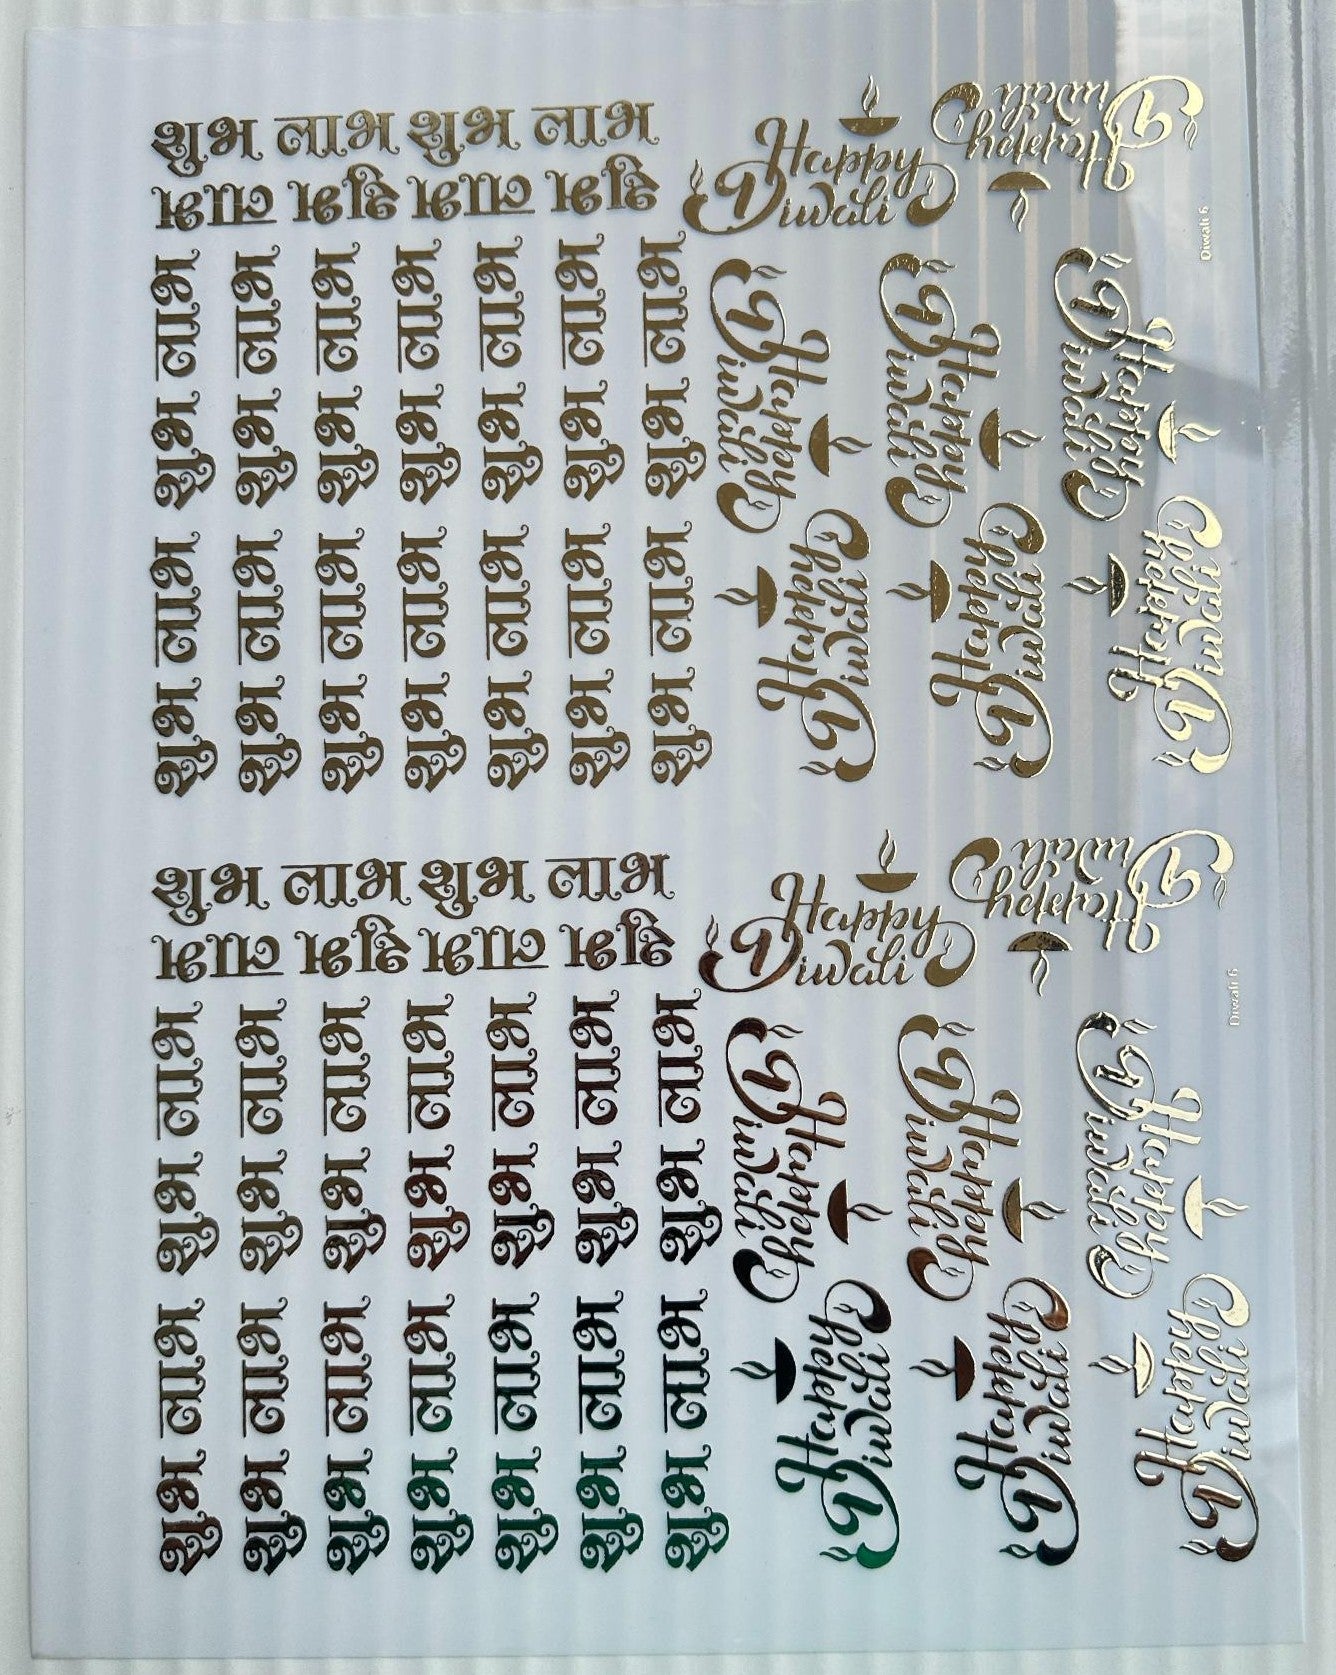 शुभ लाभ शुभ लाभ
शुभ लाभ शुभ लाभ
शुभ लाभ शुभ लाभ
शुभ लाभ शुभ लाभ
शुभ लाभ शुभ लाभ
शुभ लाभ शुभ लाभ
शुभ लाभ शुभ लाभ
शुभ लाभ शुभ लाभ
शुभ लाभ शुभ लाभ
Happy
Diwali
Happy
Diwali
Happy
Diwali
Happy
Diwali
Happy
Diwali
Happy
Diwali
Happy
Diwali
Happy
Diwali
Diwali 6
शुभ लाभ शुभ लाभ
शुभ लाभ शुभ लाभ
शुभ लाभ शुभ लाभ
शुभ लाभ शुभ लाभ
शुभ लाभ शुभ लाभ
शुभ लाभ शुभ लाभ
शुभ लाभ शुभ लाभ
शुभ लाभ शुभ लाभ
शुभ लाभ शुभ लाभ
Happy
Diwali
Happy
Diwali
Happy
Diwali
Happy
Diwali
Happy
Diwali
Happy
Diwali
Happy
Diwali
Happy
Diwali
Diwali 6